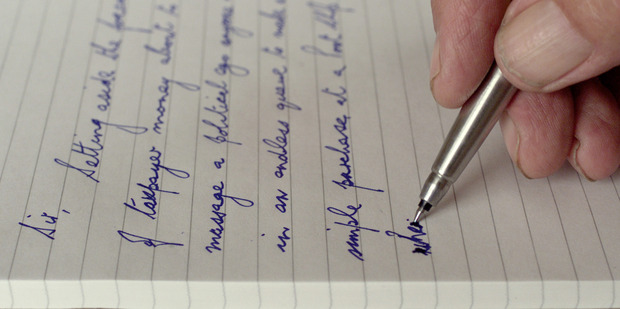 Sir,
Setting aside the
of taxpayer money about to
massage a political ego anyone
in an endless queue to make a
simple purchase at a Post